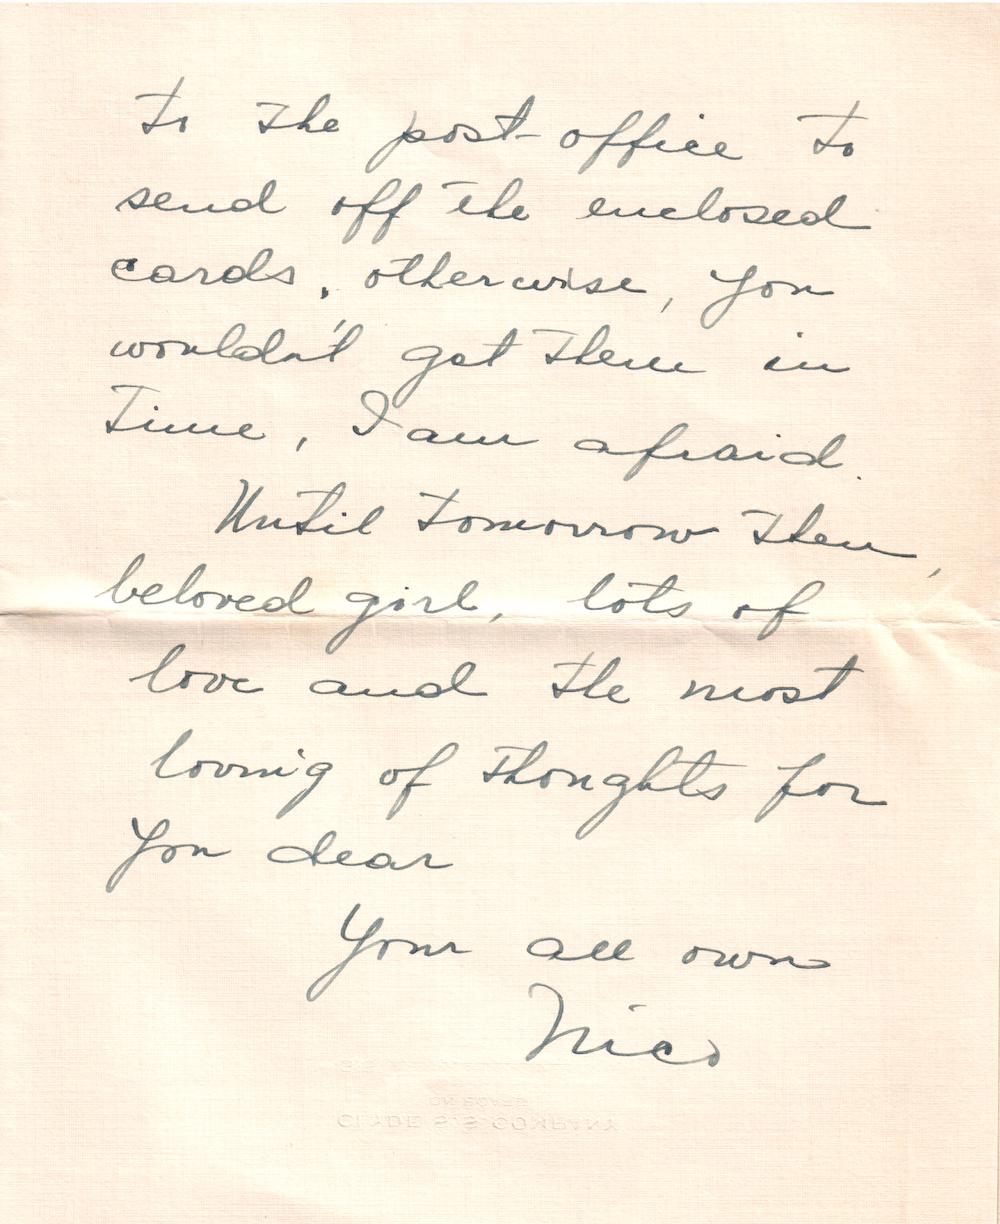 to the post-office to
send off the enclosed
cards, otherwise, you
wouldn't get them in
time, I am afraid.
Until tomorrow then,
beloved girl, lots of
love and the most
loving of thoughts for
you dear
Your all own
Nico
ON BOARD
CLYDE S.S. COMPANY